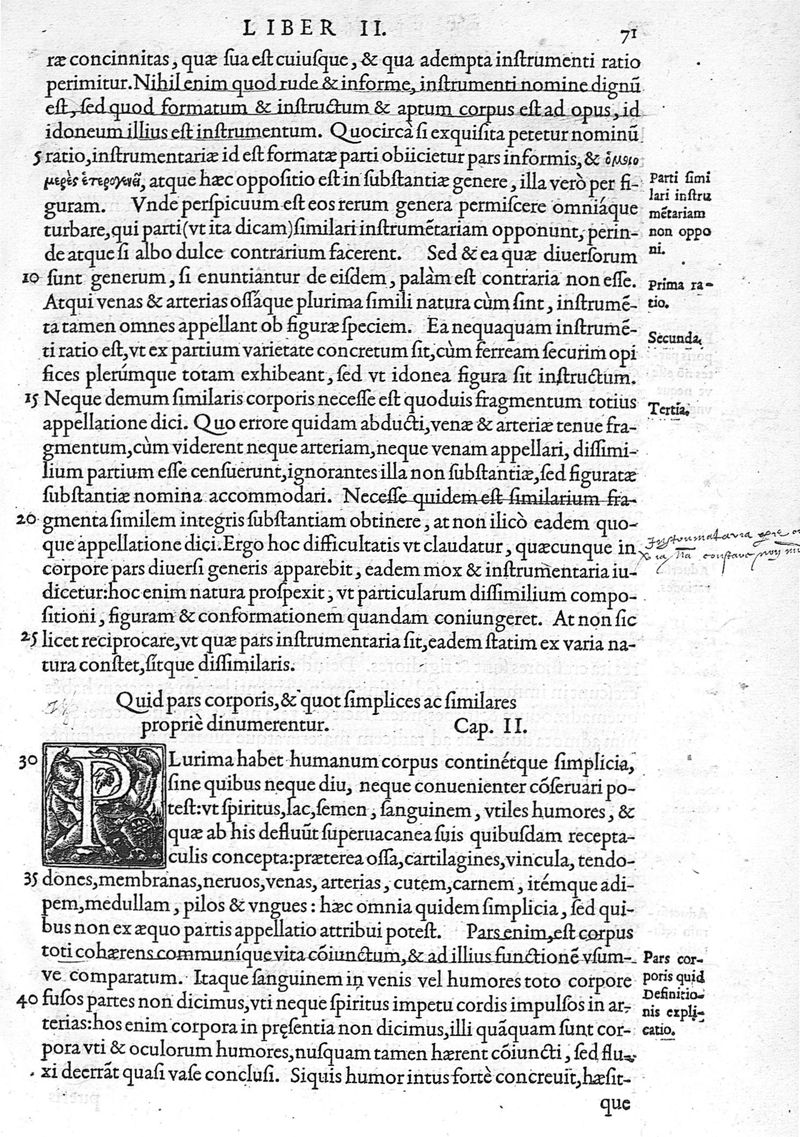 LIBER II. 71
ræ concinnitas, quæ sua est cuiusque, & qua adempta instrumenti ratio
perimitur. Nihil enim quod rude & informe, instrumenti nomine dignũ
est, sed quod formatum & instructum & aptum corpus est ad opus, id
idoneum illius est instrumentum. Quocircà si exquisita petetur nominũ
5 ratio, instrumentariæ id est formatæ parti obiicietur pars informis, & ὁμοιο
μερὲς ἑτερογενεῖ, atque hæc oppositio est in substantiæ genere, illa verò per fi-
guram. Vnde perspicuum est eos rerum genera permiscere omniáque
turbare, qui parti (vt ita dicam) similari instrumẽtariam opponunt, perin-
de atque si albo dulce contrarium facerent. Sed & ea quæ diuersorum
10 sunt generum, si enuntiantur de eisdem, palàm est contraria non esse.
Atqui venas & arterias ossáque plurima simili natura cùm sint, instrumẽ-
ta tamen omnes appellant ob figuræ speciem. Ea nequaquam instrumẽ-
ti ratio est, vt ex partium varietate concretum sit, cùm ferream securim opi
fices plerúmque totam exhibeant, sed vt idonea figura sit instructum.
15 Neque demum similaris corporis necesse est quoduis fragmentum totius
appellatione dici. Quo errore quidam abducti, venæ & arteriæ tenue fra-
gmentum, cùm viderent neque arteriam, neque venam appellari, dissimi-
lium partium esse censuerunt, ignorantes illa non substantiæ, sed figuratæ
substantiæ nomina accommodari. Necesse quidem est similarium fra-
20 gmenta similem integris substantiam obtinere, at non ilicò eadem quo-
que appellatione dici. Ergo hoc difficultatis vt claudatur, quæcunque in
corpore pars diuersi generis apparebit, eadem mox & instrumentaria iu-
dicetur: hoc enim natura prospexit, vt particularum dissimilium compo-
sitioni, figuram & conformationem quandam coniungeret. At non sic
25 licet reciprocare, vt quæ pars instrumentaria sit, eadem statim ex varia na-
tura constet, sítque dissimilaris.
Parti simi
lari instru
mẽtariam
non oppo
ni.
Prima ra-
tio.
Secunda.
Tertia.
Quid pars corporis, & quot simplices ac similares
propriè dinumerentur. Cap. II.
30 PLurima habet humanum corpus continétque simplicia,
sine quibus neque diu, neque conuenienter cõseruari po-
test: vt spiritus, lac, semen, sanguinem, vtiles humores, &
quæ ab his defluũt superuacanea suis quibusdam recepta-
culis concepta: præterea ossa, cartilagines, vincula, tendo-
35 dones, membranas, neruos, venas, arterias, cutem, carnem, itémque adi-
pem, medullam, pilos & vngues: hæc omnia quidem simplicia, sed qui-
bus non ex æquo partis appellatio attribui potest. Pars enim, est corpus
toti cohærens communíque vita cõiunctum, & ad illius functionẽ vsum-
ve comparatum. Itaque sanguinem in venis vel humores toto corpore
40 fusos partes non dicimus, vti neque spiritus impetu cordis impulsos in ar-
terias: hos enim corpora in pręsentia non dicimus, illi quãquam sunt cor-
pora vti & oculorum humores, nusquam tamen hærent cõiuncti, sed flu-
xi deerrãt quasi vase conclusi. Siquis humor intus fortè concreuit, hæsit-
que
Pars cor-
poris quid
Definitio-
nis expli-
catio.